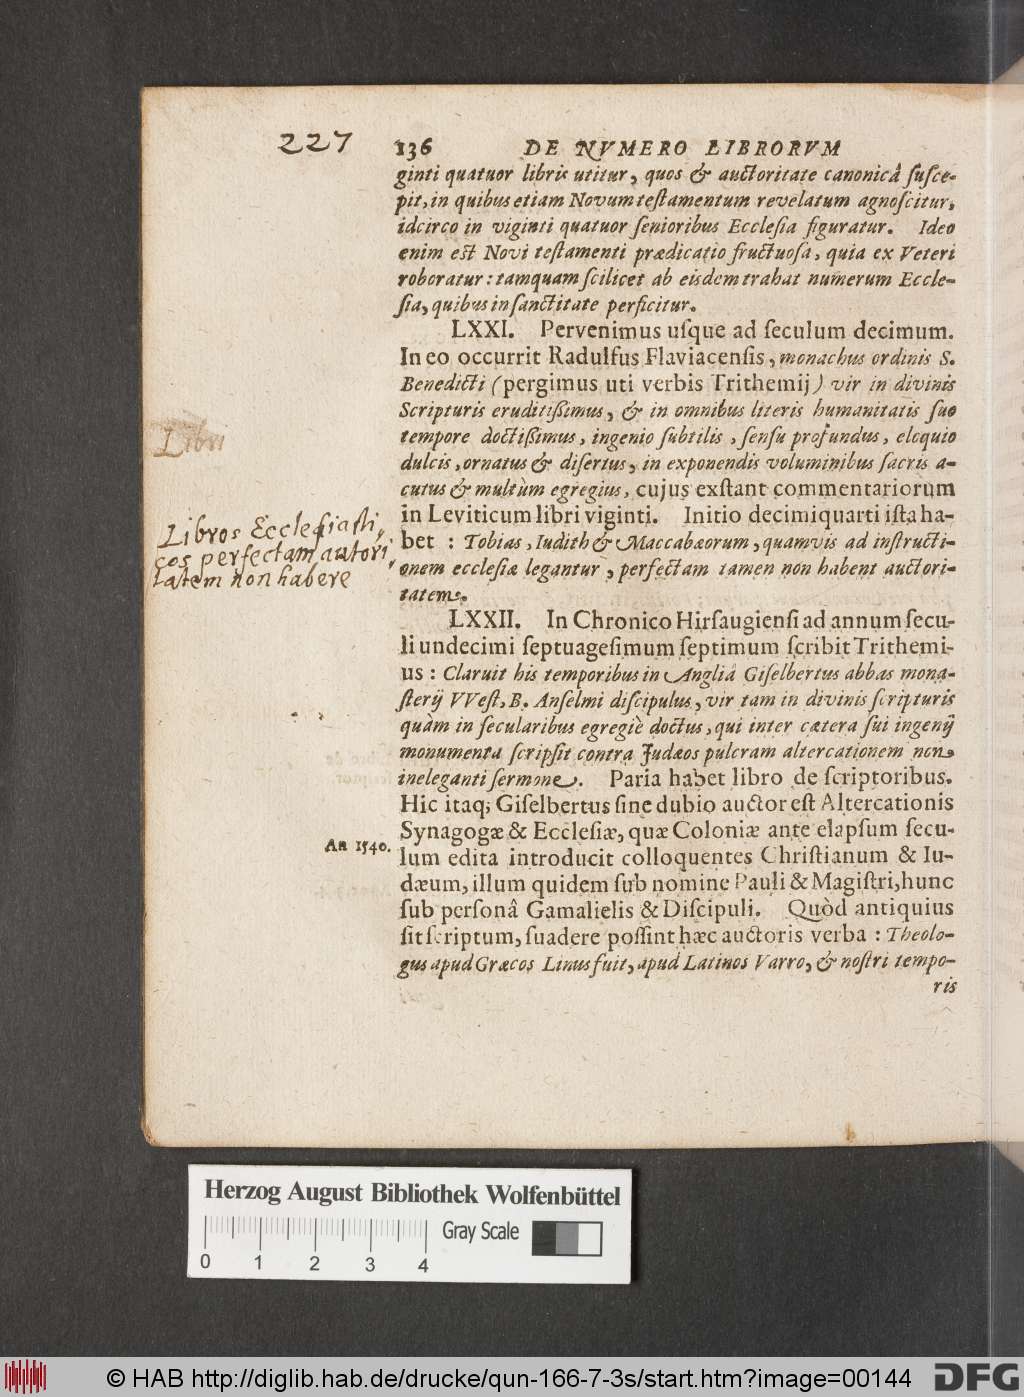 227
136 DE NVMERO LIBRORVM
ginti quatuor libris utitur, quos & auctoritate canonicâ ſuſce-
pit, in quibus etiam Novum teſtamentum revelatum agnoſcitur,
idcirco in viginti quatuor ſenioribus Eccleſia figuratur. Ideo
enim eſt Novi teſtamenti prædicatio fructuoſa, quia ex Veteri
roboratur: tamquam ſcilicet ab eisdem trahat numerum Eccle-
ſia, quibus in ſanctitate perficitur.
LXXI. Pervenimus uſque ad ſeculum decimum.
In eo occurrit Radulfus Flaviacenſis, monachus ordinis S.
Benedicti (pergimus uti verbis Trithemij) vir in divinis
Scripturis eruditiſſimus, & in omnibus literis humanitatis ſuo
tempore doctiſſimus, ingenio ſubtilis, ſenſu profundus, eloquio
dulcis, ornatus & diſertus, in exponendis voluminibus ſacris a-
cutus & multùm egregius, cujus exſtant commentariorum
in Leviticum libri viginti. Initio decimiquarti iſta ha-
bet : Tobias, Iudith & Maccabæorum, quamvis ad inſtructi-
onem eccleſiæ legantur, perfectam tamen non habent auctori-
tatem.
Libri
Libros Eccleſiaſti,
cos perfectam autori,
tatem non habere
LXXII. In Chronico Hirſaugienſi ad annum ſecu-
li undecimi ſeptuageſimum ſeptimum ſcribit Trithemi-
us : Claruit his temporibus in Angliâ Giſelbertus abbas mona-
ſterij VVeſt, B. Anſelmi diſcipulus, vir tam in divinis ſcripturis
quàm in ſecularibus egregiè doctus, qui inter cætera ſui ingenij
monumenta ſcripſit contra Judæos pulcram altercationem non
ineleganti ſermone. Paria habet libro de ſcriptoribus.
Hic itaq; Giſelbertus ſine dubio auctor eſt Altercationis
Synagogæ & Eccleſiæ, quæ Coloniæ ante elapſum ſecu-
An 1540.
lum edita introducit colloquentes Chriſtianum & Iu-
dæum, illum quidem ſub nomine Pauli & Magiſtri, hunc
ſub perſonâ Gamalielis & Diſcipuli. Quòd antiquius
ſit ſcriptum, ſuadere poſſint hæc auctoris verba : Theolo-
gus apud Græcos Linus fuit, apud Latinos Varro, & noſtri tempo-
ris
Herzog August Bibliothek Wolfenbüttel
Gray Scale
0 1 2 3 4
© HAB http://diglib.hab.de/drucke/qun-166-7-3s/start.htm?image=00144
DFG